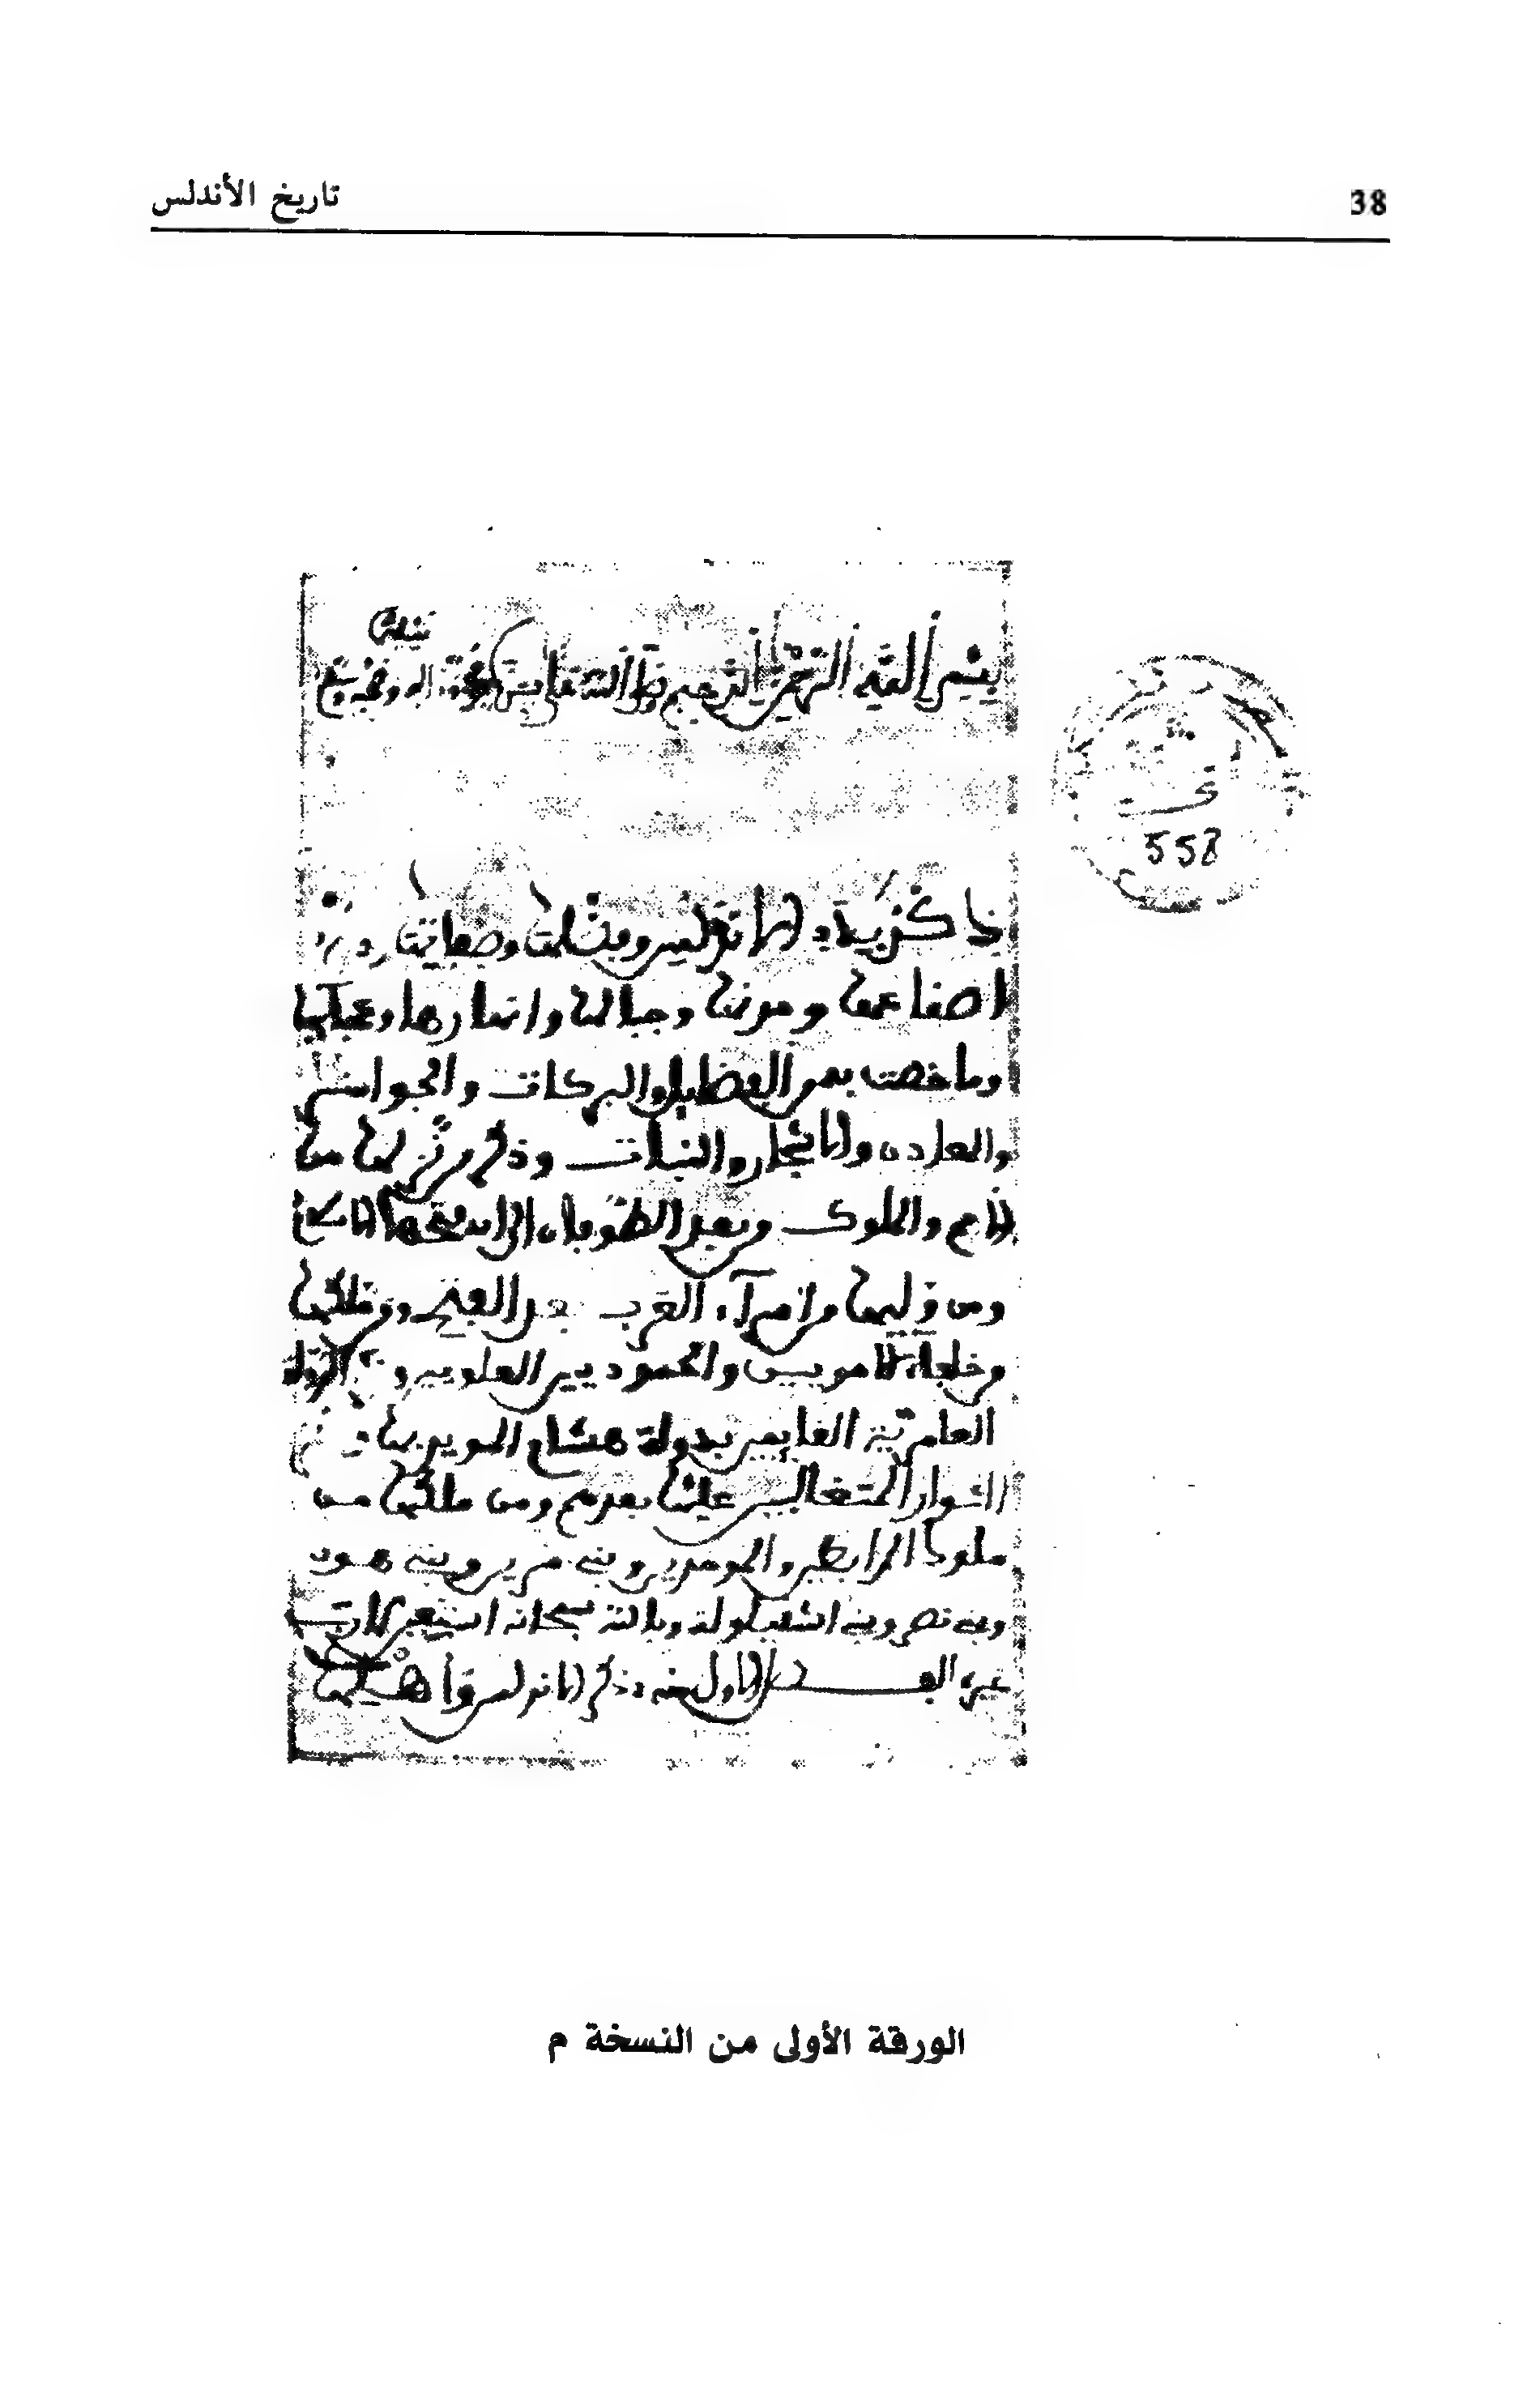 38
تاريخ الأندلس
بسم الله الرحمن الرحيم
558
ذكر بلاد الاندلس وفضلها وصفاتها وذكر
اصقاعها ومدنها وجبالها وانهارها وعجايبها
وما خصت به من الفضايل والبركات والخواص
والمعادن والاشجار والنبات وذكر من نزلها من
الامم والملوك وبعد الطوفان الى ان فتحها الاسلام
ومن وليها من امراء العرب بعد الفتح ومن ملكها
من خلفاء الامويين والحموديين العلويين والدولة
العامرية القايمين بدولة هشام المويد بها
الثوار المتغالبين عليها بعدهم ومن ملكها من
ملوك المرابطين والموحدين وبني مرين وبني هود
وبني نصر وبني اشقيلولة وبالله سبحانه استعين لا رب
غيره الفصل الاول في ذكر الاندلس واهلها
الورقة الأولى من النسخة م